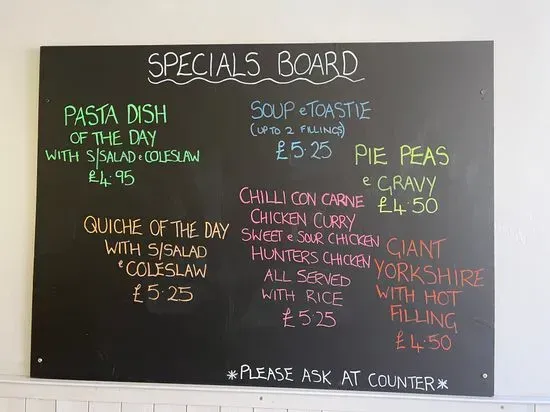 SPECIALS BOARD
PASTA DISH
OF THE DAY
WITH S/SALAD & COLESLAW
£4.95
SOUP & TOASTIE
(UP TO 2 FILLINGS)
£5.25
PIE PEAS
& GRAVY
£4.50
QUICHE OF THE DAY
WITH S/SALAD
& COLESLAW
£5.25
CHILLI CON CARNE
CHICKEN CURRY
SWEET & SOUR CHICKEN
HUNTERS CHICKEN
ALL SERVED
WITH RICE
£5.25
GIANT
YORKSHIRE
WITH HOT
FILLING
£4.50
*PLEASE ASK AT COUNTER*